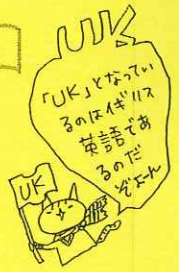 UK
「UK」となってい
るのはイギリス
英語であ
るのだ
ぞよーん
UK